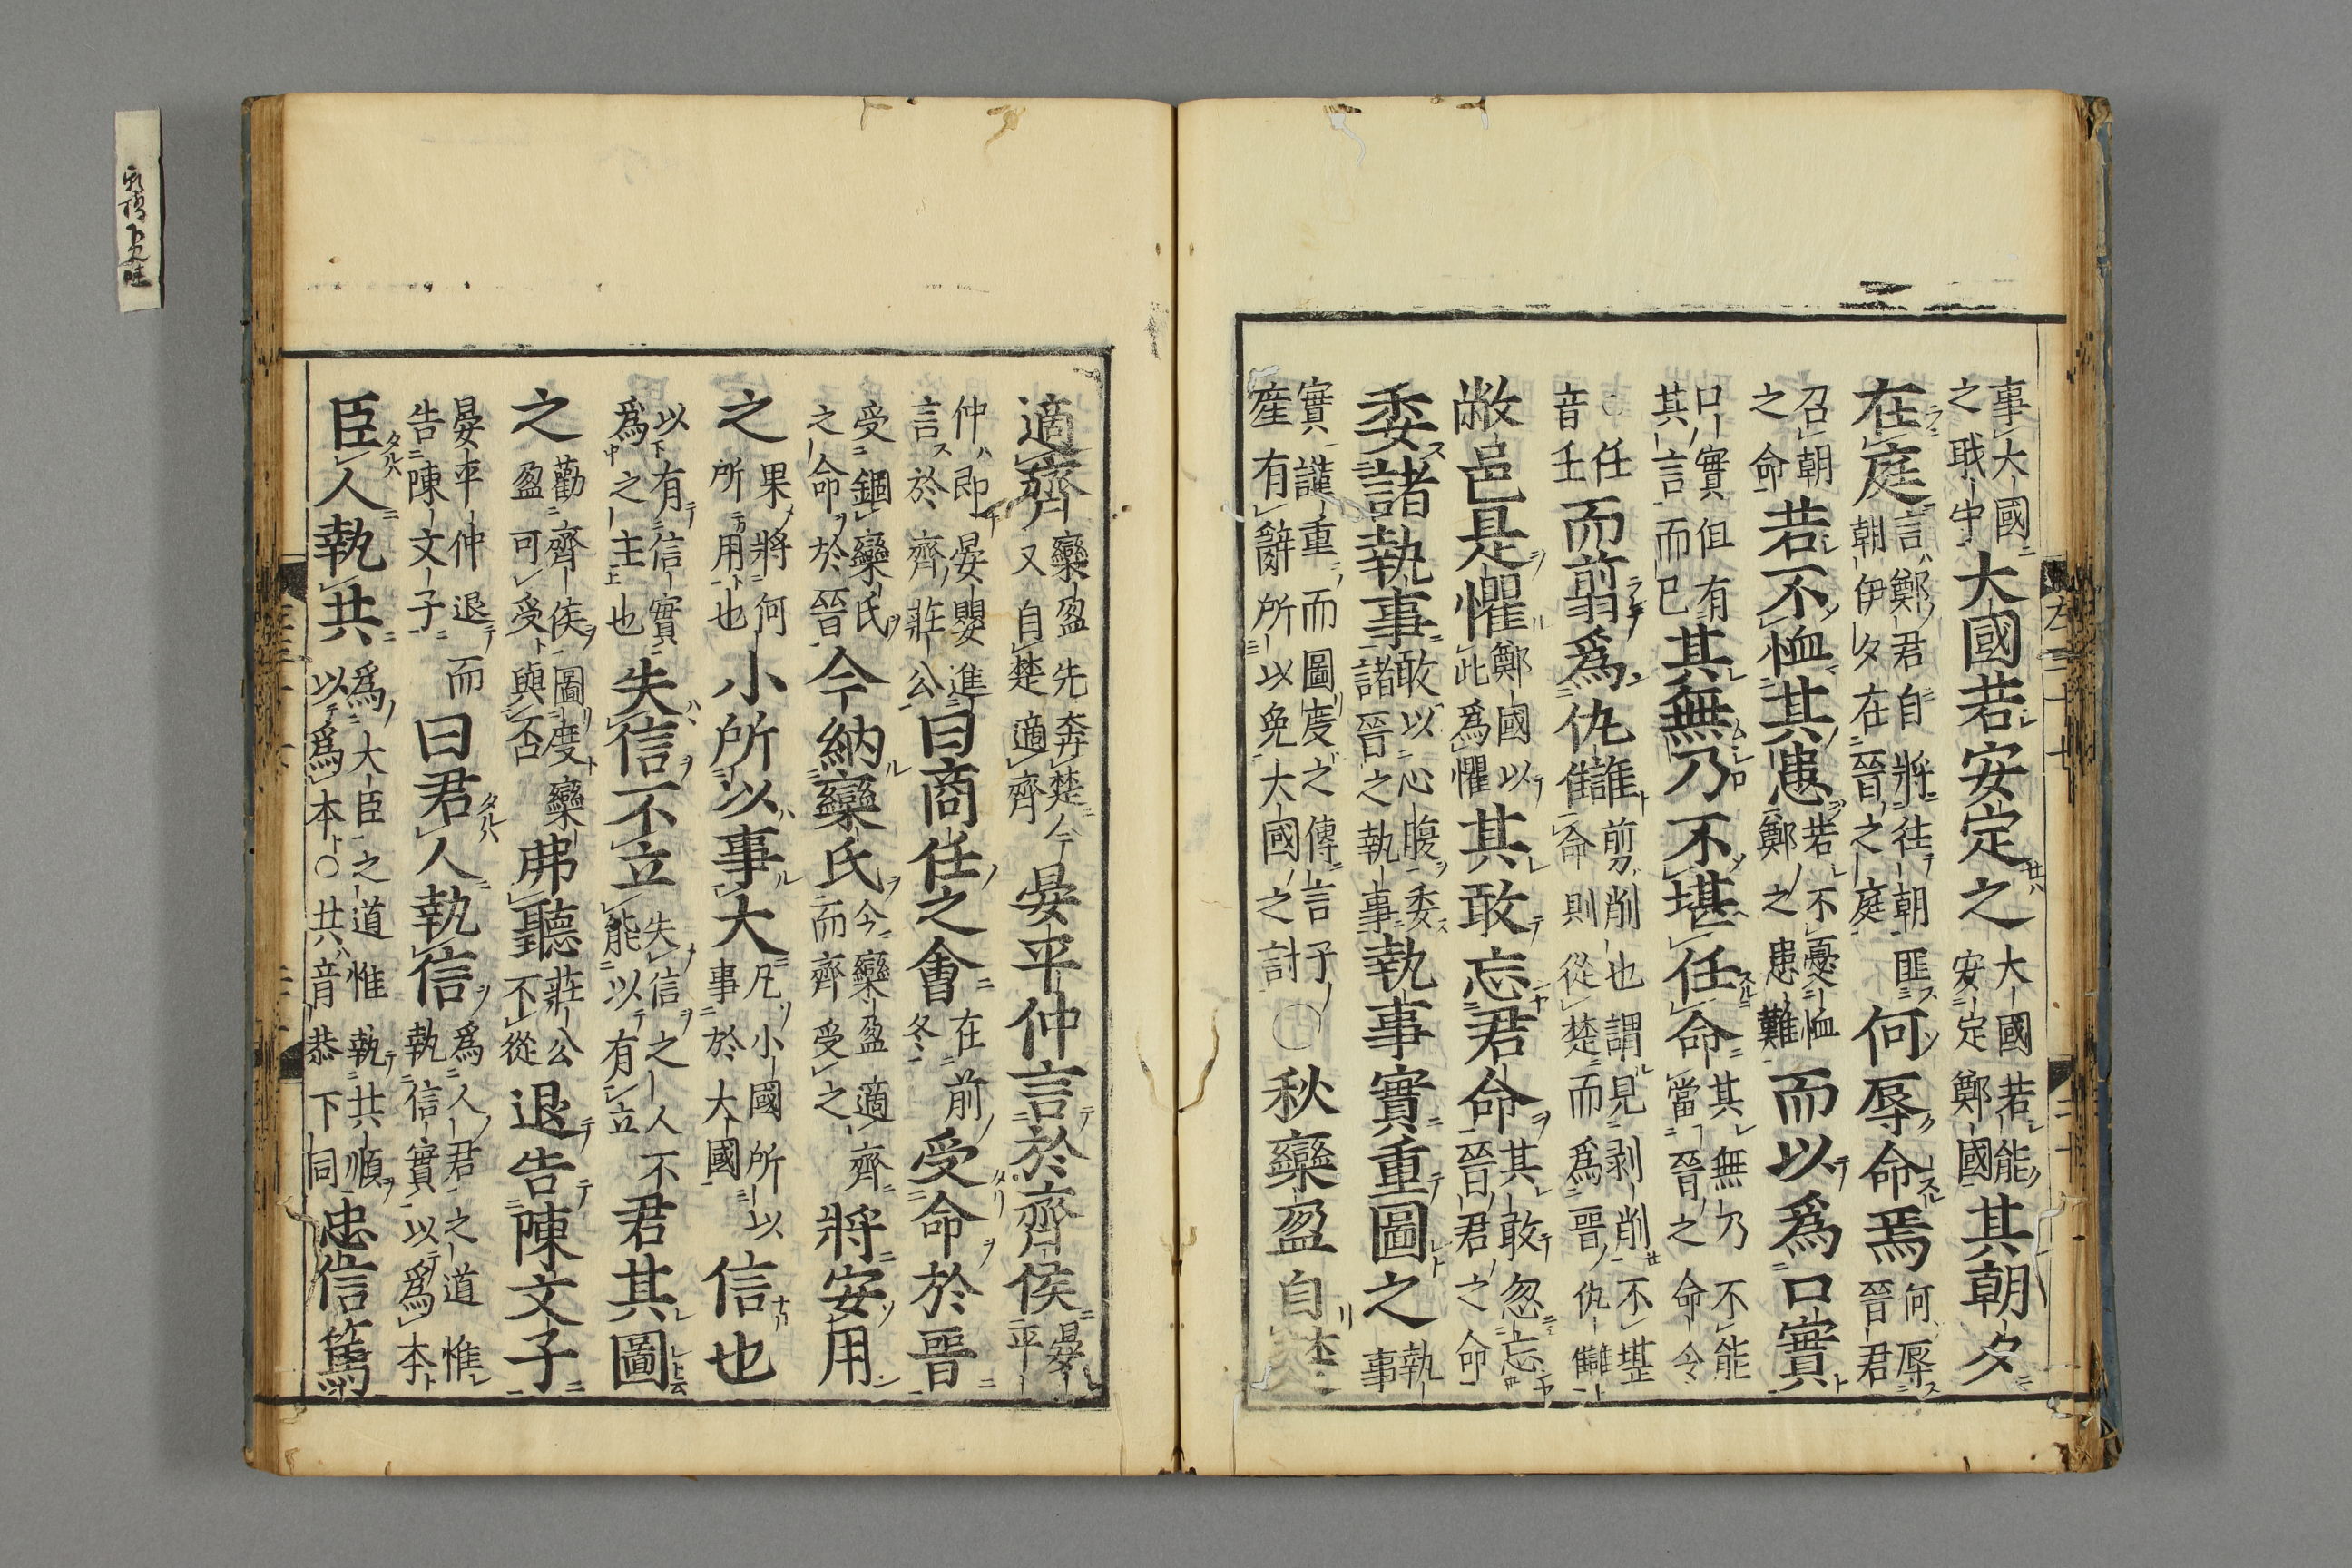 事大國之職中大國若安定之大國若能安定鄭國其朝夕
在庭言鄭君自將往朝匪朝伊夕在晉之庭何辱命焉何辱晉君
召朝之命若不恤其患若不憂恤鄭之患難而以爲口實
口實但有其言而已其無乃不堪任命其無乃不能當晉之命令
○任音壬而翦爲仇讎剪削也謂見剥削不堪命則從楚而爲晉仇讎
敝邑是懼鄭國以此爲懼其敢忘君命其敢忽忘晉君之命
委諸執事敢以心腹委諸晉之執事執事實重圖之執事
實謹重而圖度之傳言子産有辭所以免大國之討○秋欒盈自楚
適齊欒盈先奔楚今又自楚適齊晏平仲言於齊侯晏平
仲即晏嬰進言於齊莊公曰商任之會在前冬受命於晉
受錮欒氏之命於晉今納欒氏今欒盈適齊而齊受之將安用
之果將何所用也小所以事大凡小國所以事於大國信也
以有信實爲之主也失信不立失信之人不能以有立君其圖
之勸齊侯圖度欒盈可受與否弗聽莊公不從退告陳文子
晏平仲退而告陳文子曰君人執信爲人君之道惟執信實以爲本
臣人執共爲大臣之道惟執共順以爲本○共音恭下同忠信篤